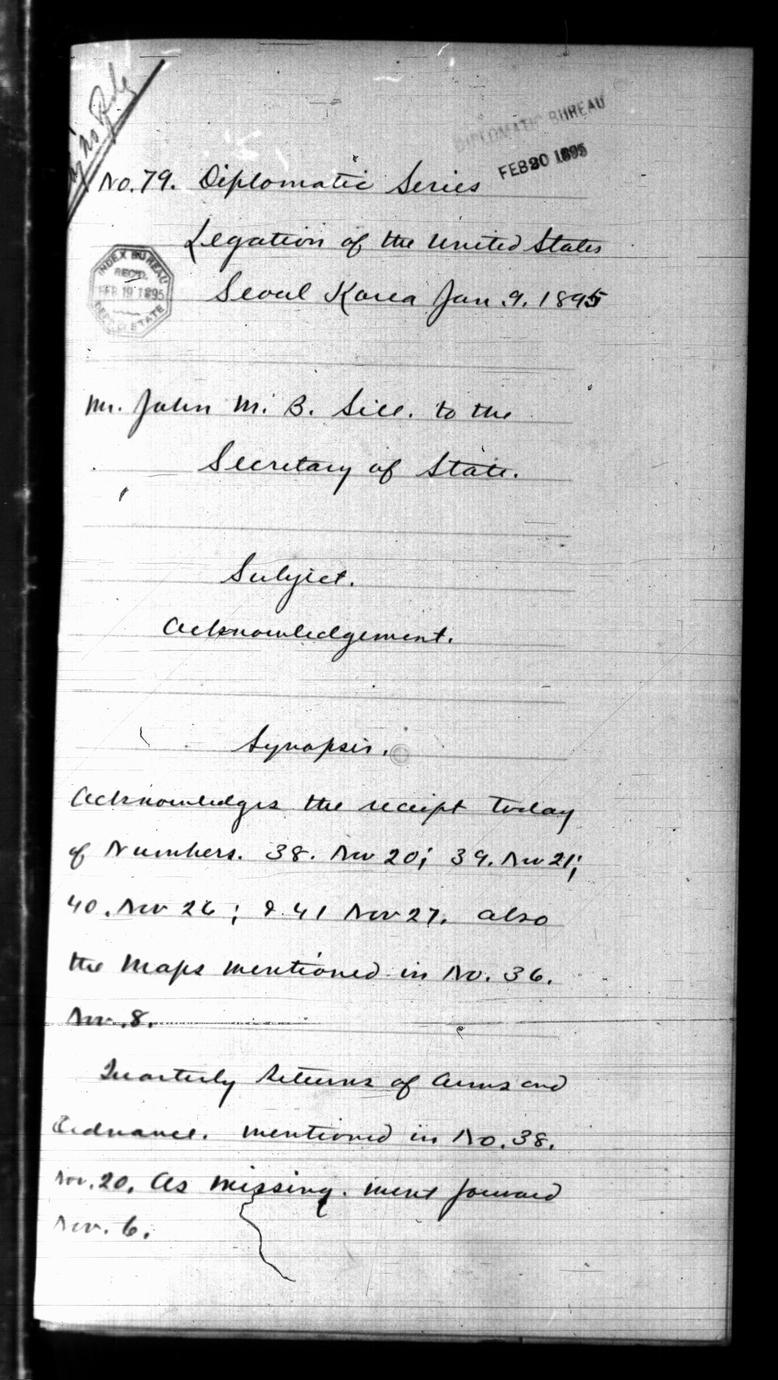 DIPLOMATIC BUREAU
FEB 20 1895
No. 79. Diplomatic Series
Legation of the United States
INDEX BUREAU
REC'D.
FEB 19 1895
DEPT. STATE
Seoul Korea Jan. 9. 1895
Mr. John M. B. Sill. to the
Secretary of State.
Subject.
Acknowledgement.
Synopsis.
Acknowledges the receipt today
of Numbers. 38. Nov 20; 39. Nov 21;
40. Nov 26; & 41 Nov 27. also
the Maps mentioned in No. 36.
Nov. 8.
Quarterly Returns of Arms and
Ordnance. mentioned in No. 38.
Nov. 20. As missing. went forward
Nov. 6.